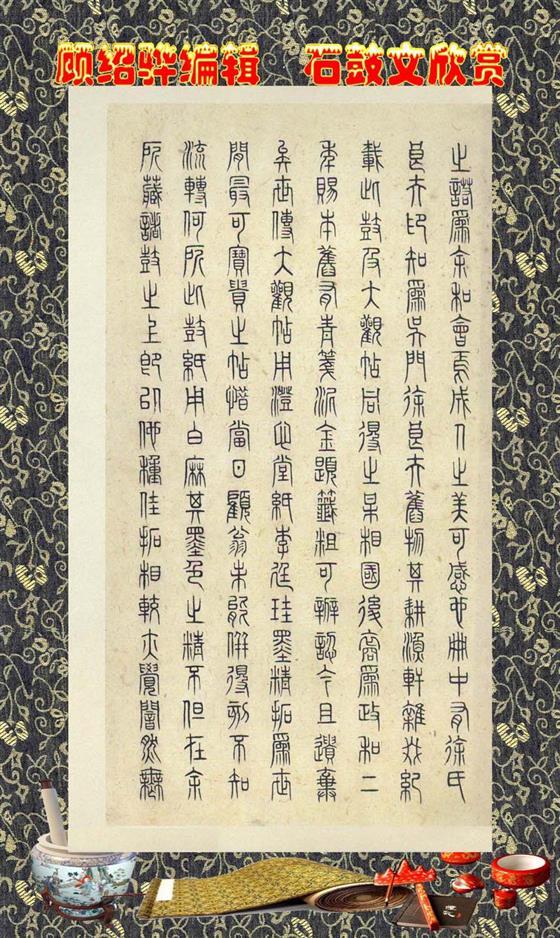 顾绍骅编辑 石鼓文欣赏
之諾爲余和會焉成人之美可感也冊中有徐氏
良夫印知爲吳門徐良夫舊物其耕漁軒雜紀
載此鼓及大觀帖同得之某相國後裔爲政和二
年賜本舊有青箋泥金題籤粗可辦認今且遺棄
矣世傳大觀帖用澄心堂紙李廷珪墨精拓爲世
間最可寶貴之帖惜當日顧翁未能併得不知
流轉何所此鼓紙用白麻其墨色之精不但在余
所藏諸鼓之上即以他種佳拓相較亦覺闇然無